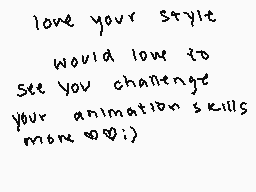 love your style
would love to
see you challenge
your animation skills
more ♡♡;)